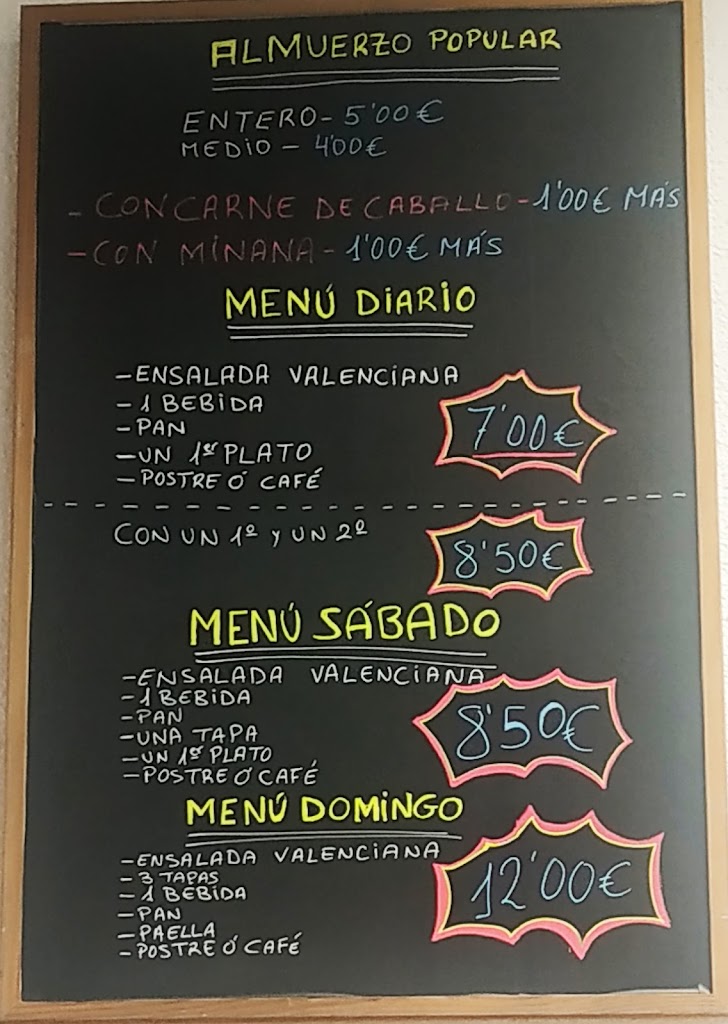 ALMUERZO POPULAR
ENTERO - 5'00€
MEDIO - 4'00€
- CON CARNE DE CABALLO - 1'00€ MÁS
- CON MINANA - 1'00€ MÁS
MENÚ DIARIO
- ENSALADA VALENCIANA
- 1 BEBIDA
- PAN
- UN 1er PLATO
- POSTRE Ó CAFÉ
7'00€
CON UN 1º Y UN 2º
8'50€
MENÚ SÁBADO
- ENSALADA VALENCIANA
- 1 BEBIDA
- PAN
- UNA TAPA
- UN 1er PLATO
- POSTRE Ó CAFÉ
8'50€
MENÚ DOMINGO
- ENSALADA VALENCIANA
- 3 TAPAS
- 1 BEBIDA
- PAN
- PAELLA
- POSTRE Ó CAFÉ
12'00€